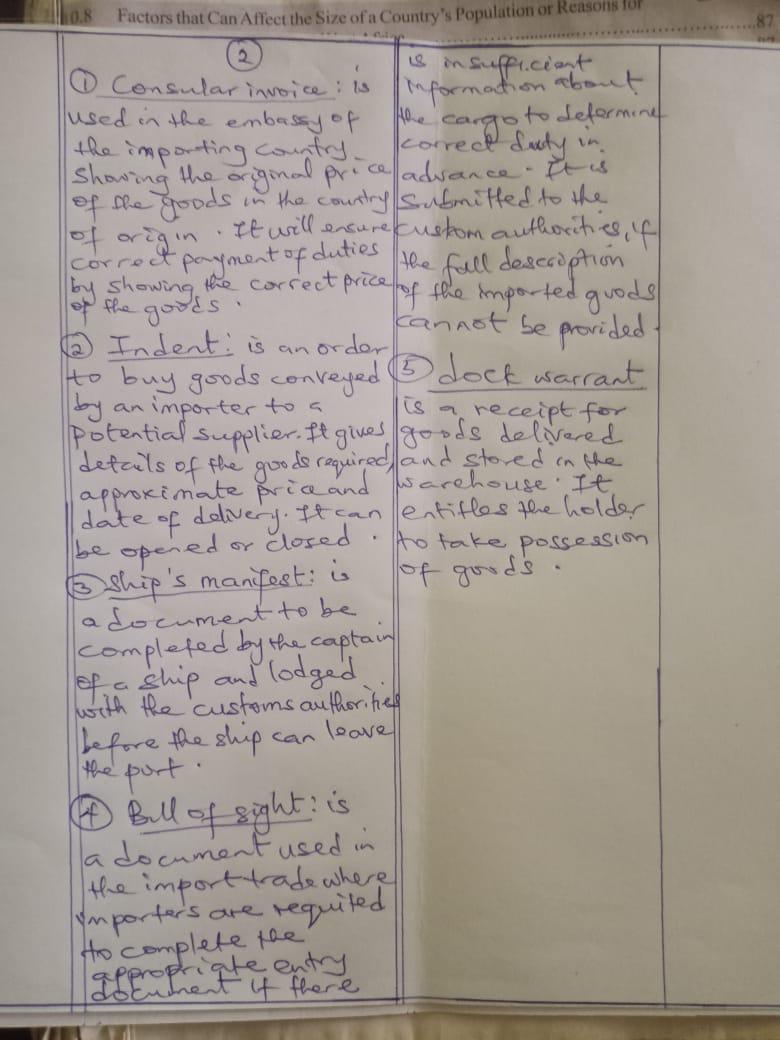 10.8 Factors that Can Affect the Size of a Country's Population or Reasons for
87
2
1 Consular invoice: is
used in the embassy of
the importing country
showing the original price
of the goods in the country
of origin. It will ensure
correct payment of duties
by showing the correct price
of the goods.
2 Indent: is an order
to buy goods conveyed
by an importer to a
potential supplier. It gives
details of the goods required,
approximate price and
date of delivery. It can
be opened or closed.
3 Ship's manifest: is
a document to be
completed by the captain
of a ship and lodged
with the customs authorities
before the ship can leave
the port.
4 Bill of sight: is
a document used in
the import trade where
importers are required
to complete the
appropriate entry
document if there
is insufficient
information about
the cargo to determine
correct duty in
advance. It is
submitted to the
custom authorities, if
the full description
of the imported goods
cannot be provided.
5 dock warrant
is a receipt for
goods delivered
and stored in the
warehouse. It
entitles the holder
to take possession
of goods.